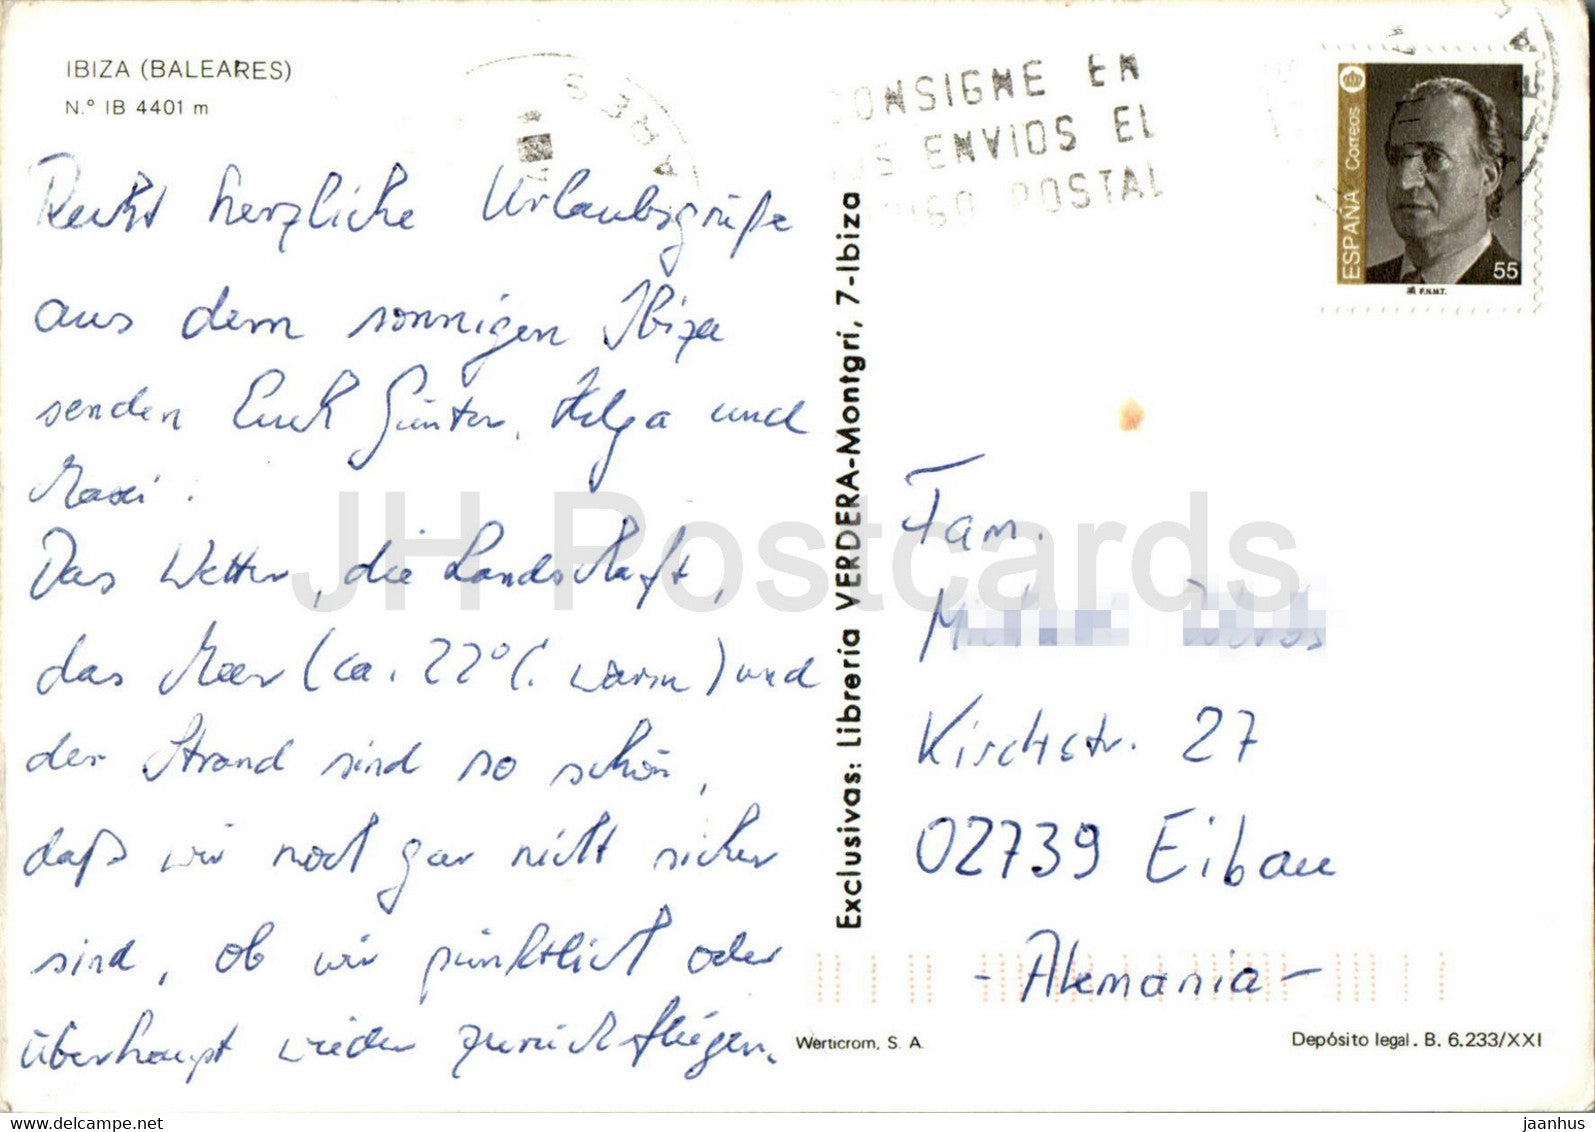 IBIZA (BALEARES)
N.º IB 4401 m
Recht herzliche Urlaubsgrüße
aus dem sonnigen Ibiza
senden Euch Günter, Helga und
Maxi.
Das Wetter, die Landschaft,
das Meer (ca. 22°C. warm) und
der Strand sind so schön,
daß wir noch gar nicht sicher
sind, ob wir pünktlich oder
überhaupt wieder zurückfliegen.
Exclusivas: Libreria VERDERA-Montgri, 7-Ibiza
ARES
CONSIGNE EN
ENVIOS EL
POSTAL
ESPAÑA Correos
55
F.N.M.T.
Fam.
Kirchstr. 27
02739 Eibau
- Alemania -
Werticrom, S. A.
Depósito legal. B. 6.233/XXI
JH Postcards
www.delcampe.net
jaanhus